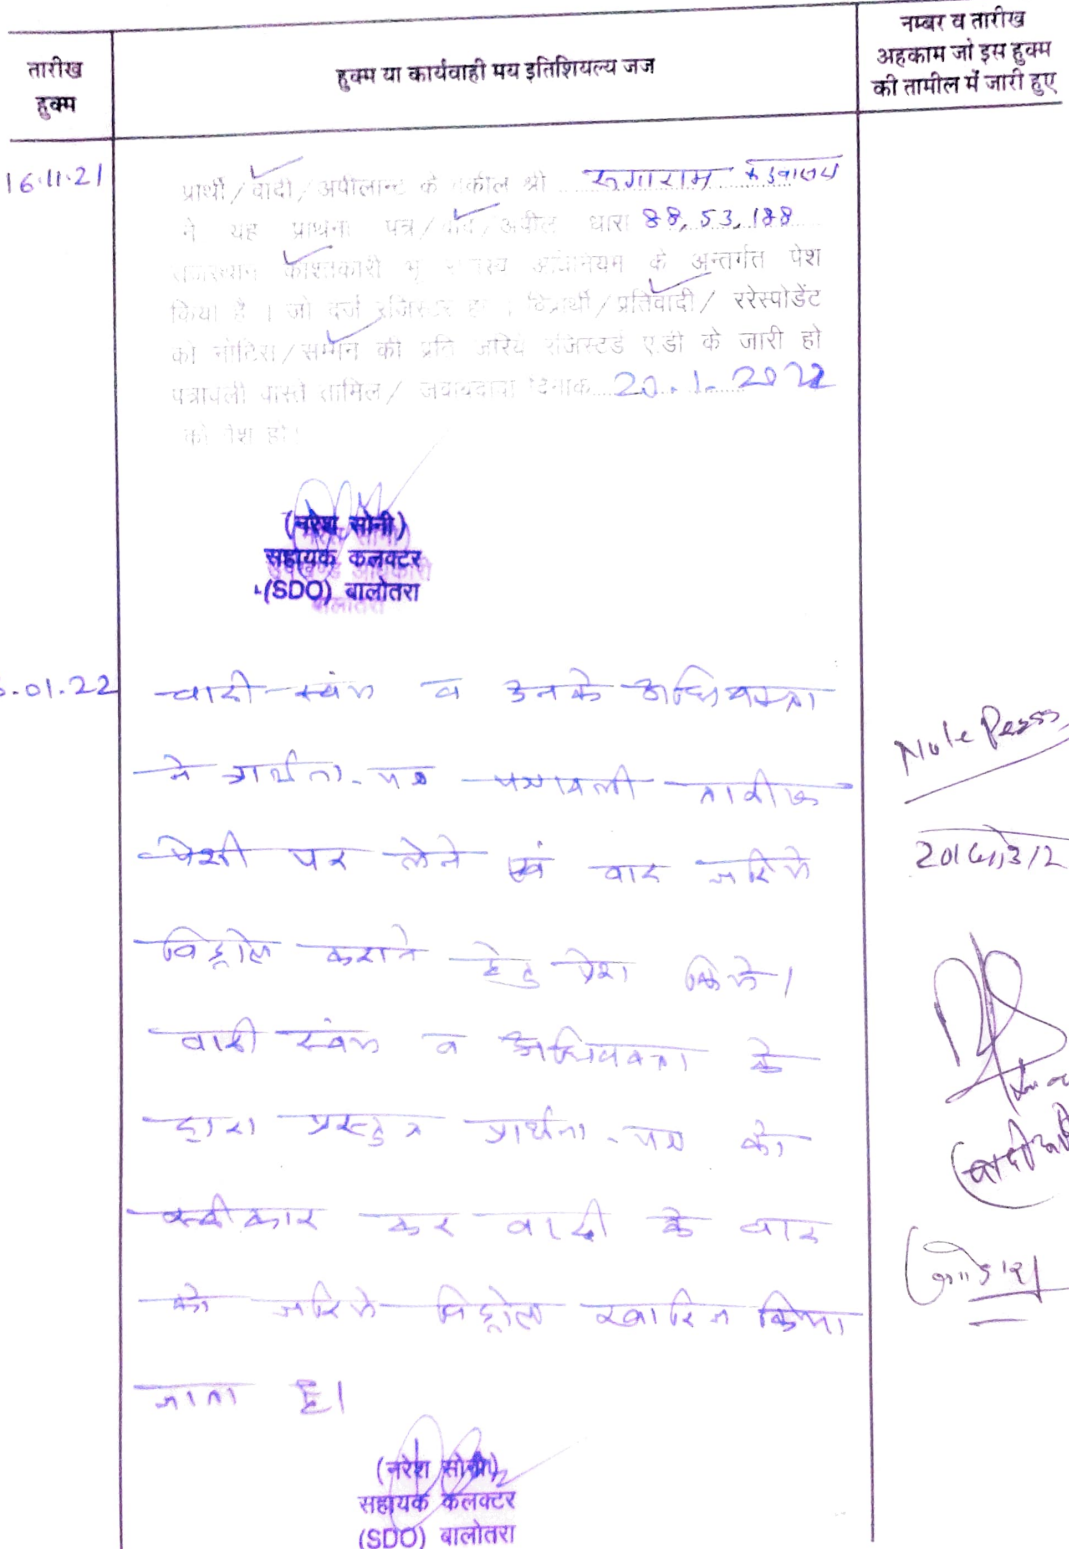 तारीख
हुक्म
हुक्म या कार्यवाही मय इतिशियल्य जज
नम्बर व तारीख
अहकाम जो इस हुक्म
की तामील में जारी हुए
16.11.21
प्रार्थी/वादी/अपीलान्ट के वकील श्री रूगाराम
ने यह प्राथना पत्र/वाद/अपील धारा 88, 53, 188
राजस्थान काश्तकारी भू राजस्व अधिनियम के अन्तर्गत पेश
किया है। जो दर्ज रजिस्टर हो। विप्रार्थी/प्रतिवादी/ ररेस्पोडेंट
को नोटिस/सम्मन की प्रति जरिये रजिस्टर्ड ए.डी के जारी हो
पत्रावली वास्ते तामिल/ जवाबदावा दिनांक 20.1.2022
को पेश हो।
(नरेश सोनी)
सहायक कलक्टर
(SDO) बालोतरा
.01.22
वादी स्वंय व उनके अधिवक्ता
ने प्रार्थना-पत्र पत्रावली तारीख
पेशी पर लेने एवं वाद जरिये
विड्रोल कराने हेतु पेश किये।
वादी स्वंय व अधिवक्ता के
द्वारा प्रस्तुत प्रार्थना-पत्र को
स्वीकार कर वादी के वाद
को जरिये विड्रोल खारिज किया
जाता है।
(नरेश सोनी)
सहायक कलक्टर
(SDO) बालोतरा